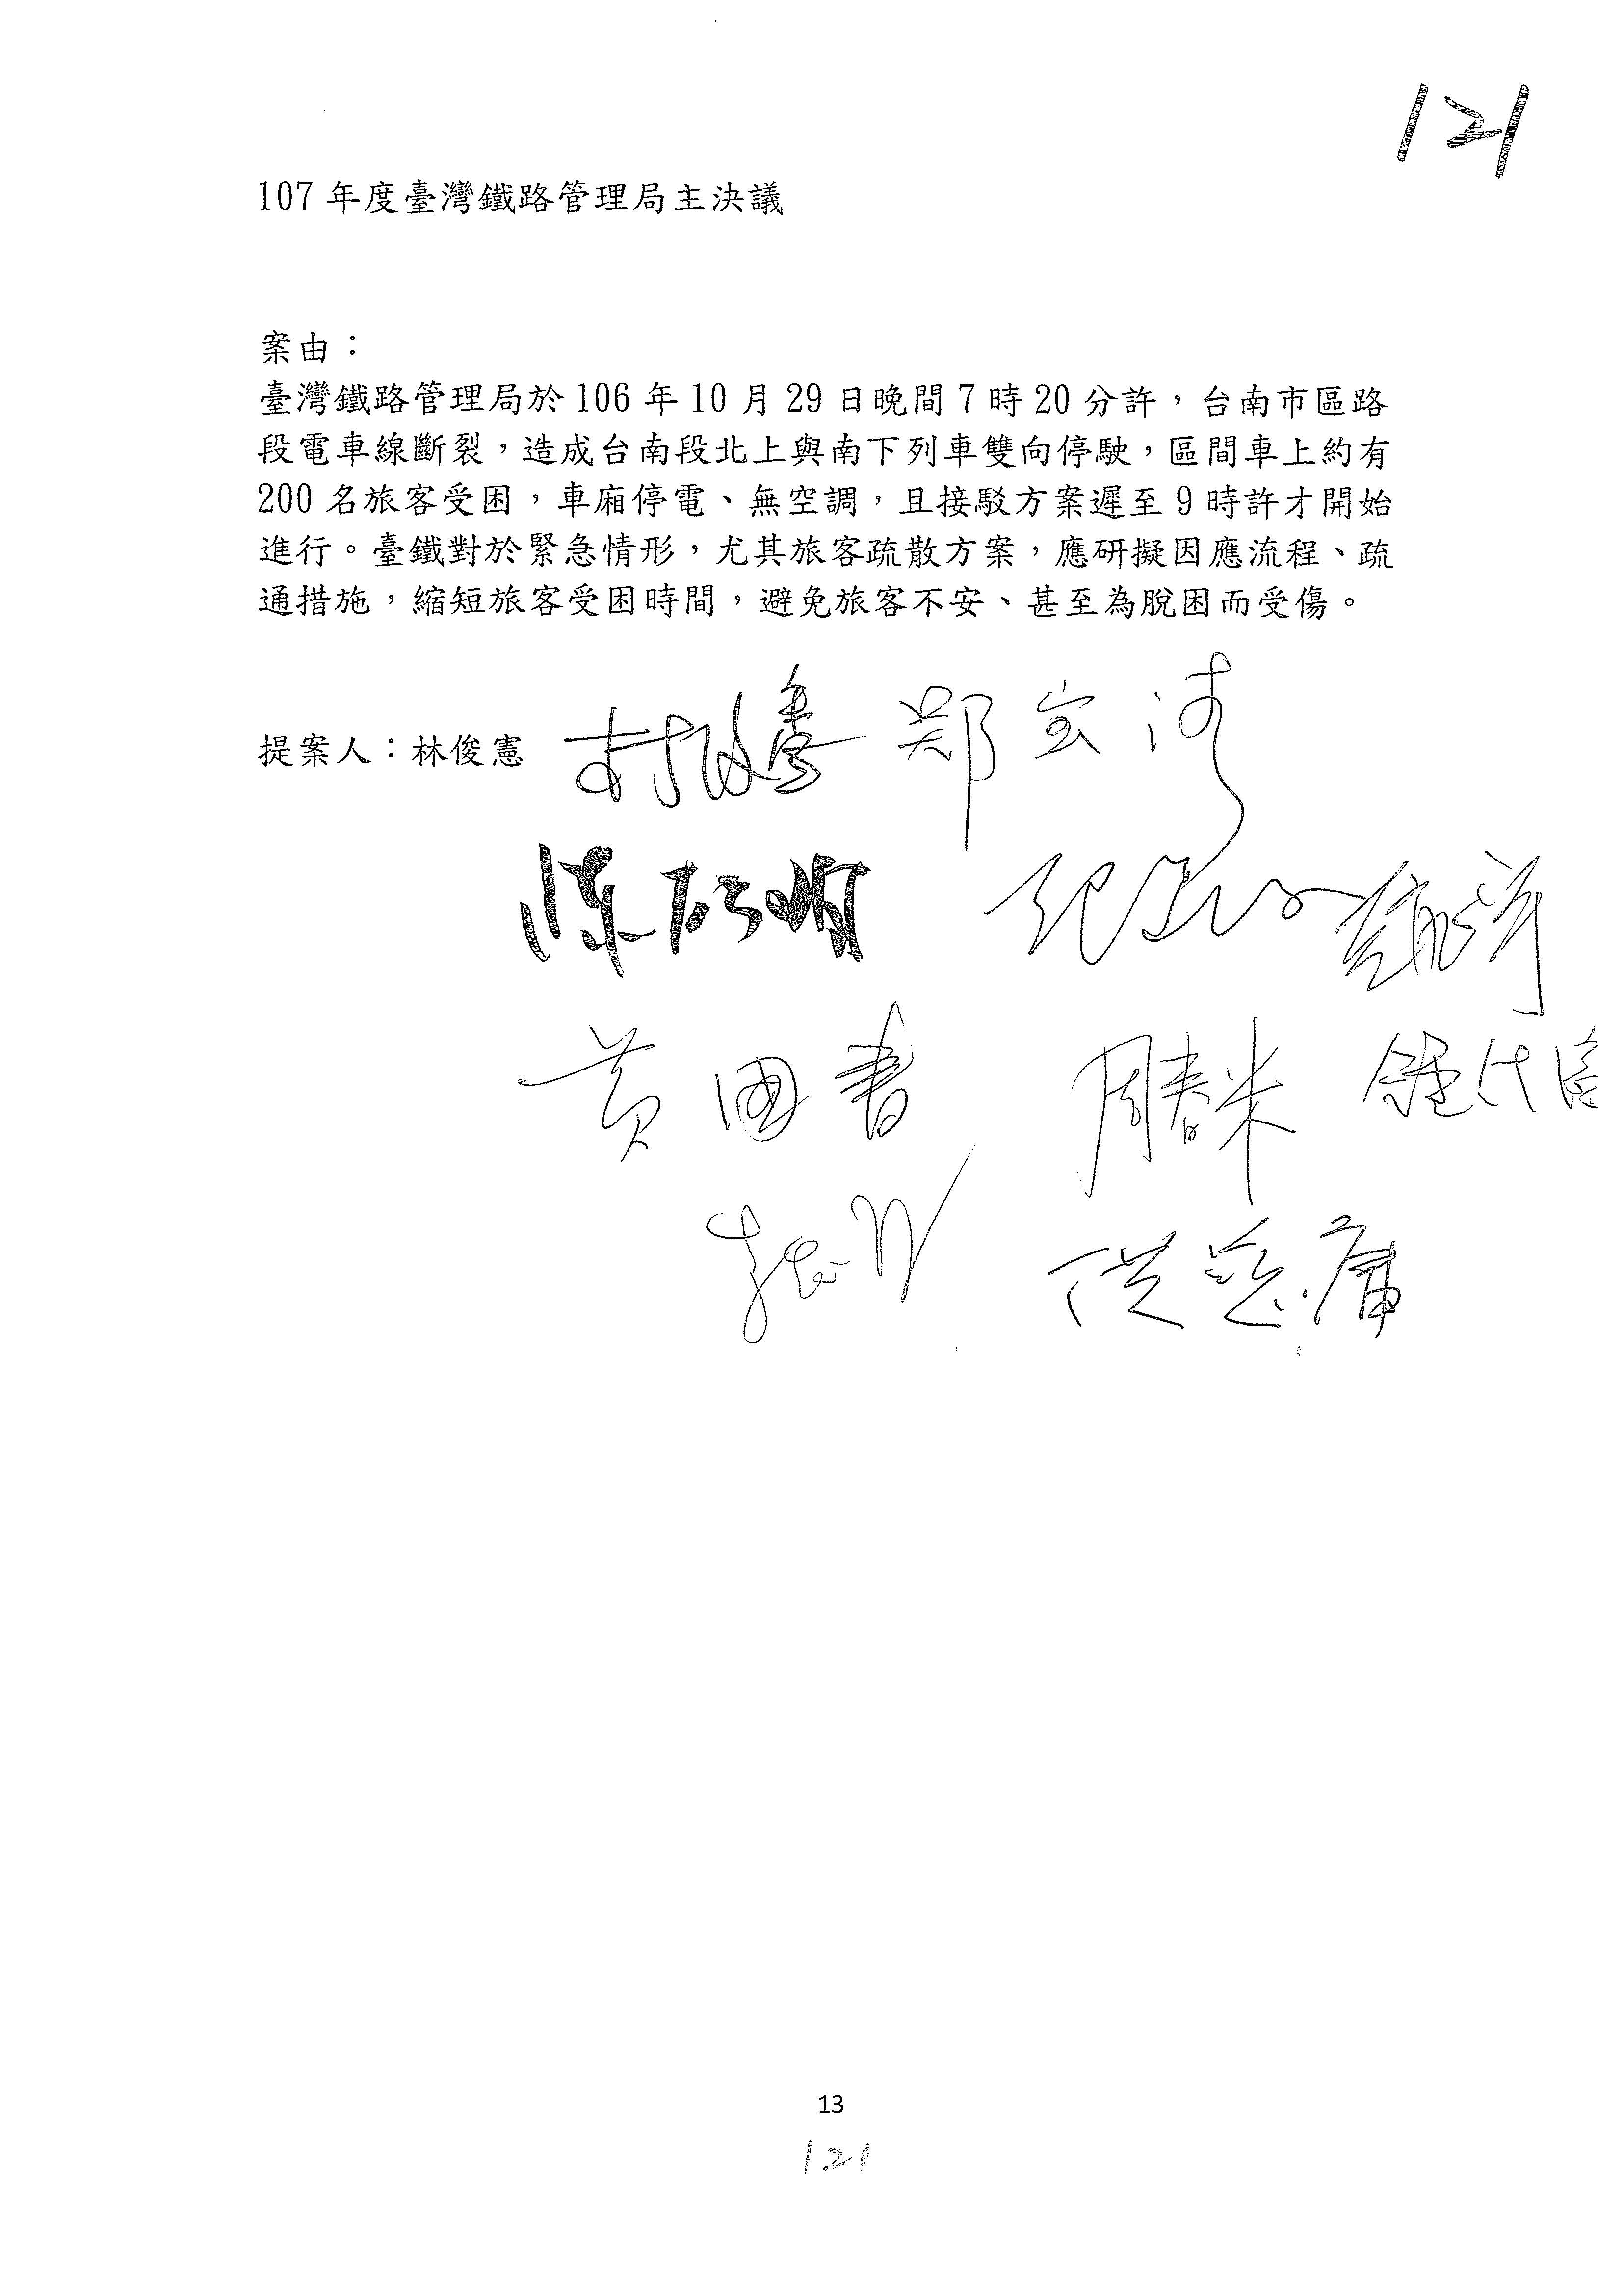 121
107 年度臺灣鐵路管理局主決議
案由：
臺灣鐵路管理局於 106 年 10 月 29 日晚間 7 時 20 分許，台南市區路
段電車線斷裂，造成台南段北上與南下列車雙向停駛，區間車上約有
200 名旅客受困，車廂停電、無空調，且接駁方案遲至 9 時許才開始
進行。臺鐵對於緊急情形，尤其旅客疏散方案，應研擬因應流程、疏
通措施，縮短旅客受困時間，避免旅客不安、甚至為脫困而受傷。
提案人：林俊憲 林俊憲 鄭宝清
陳
黃國書 周春米
洪慈庸
13
121